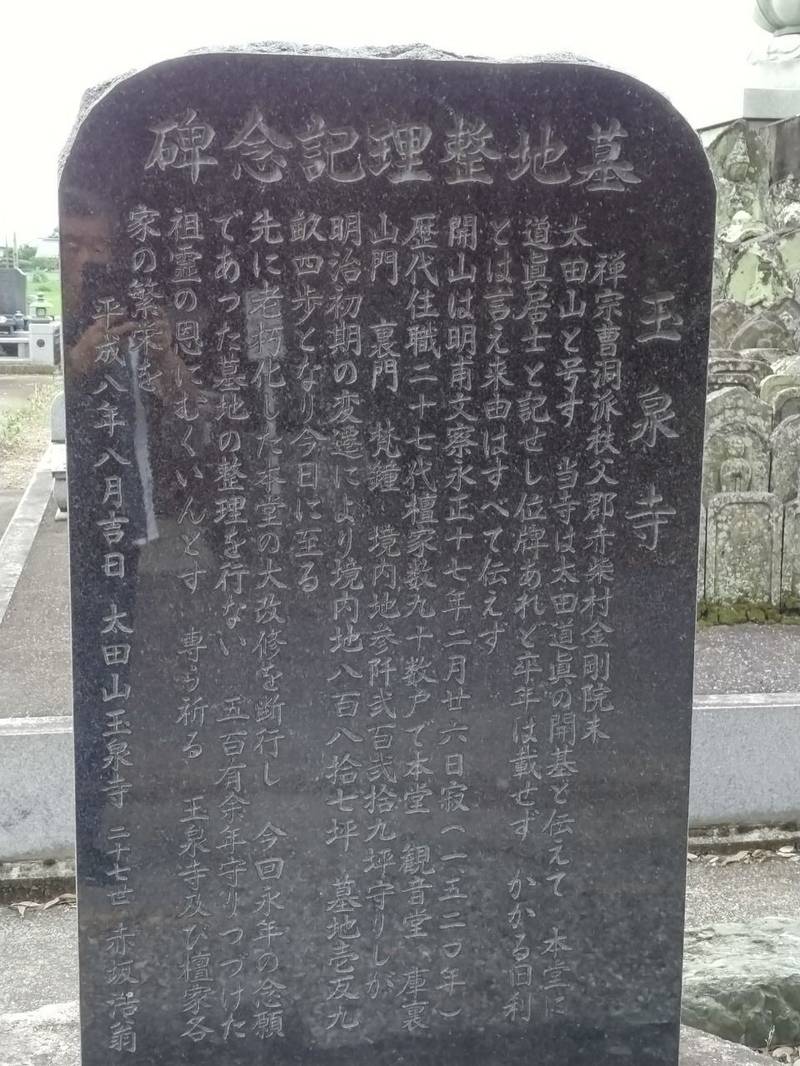 墓地整理記念碑
玉泉寺
禅宗曹洞派秩父郡赤柴村金剛院末
太田山と号す 当寺は太田道眞の開基と伝えて 本堂に
道眞居士と記せし位牌あれど平年は載せず かかる旧利
とは言え来由はすべて伝えず
開山は明甫文察永正十七年二月廿六日寂(一五二〇年)
歴代住職二十七代檀家数九十数戸で本堂 観音堂 庫裏
山門 裏門 梵鐘 境内地参阡弐百弐拾九坪守りしが
明治初期の変遷により境内地八百八拾七坪 墓地壱反九
畝四歩となり今日に至る
先に老朽化した本堂の大改修を断行し 今回永年の念願
であった墓地の整理を行ない 五百有余年守りつづけた
祖霊の恩にむくいんとす 専ら祈る 玉泉寺及び檀家各
家の繁栄を
平成八年八月吉日 太田山玉泉寺 二十七世 赤坂浩翁